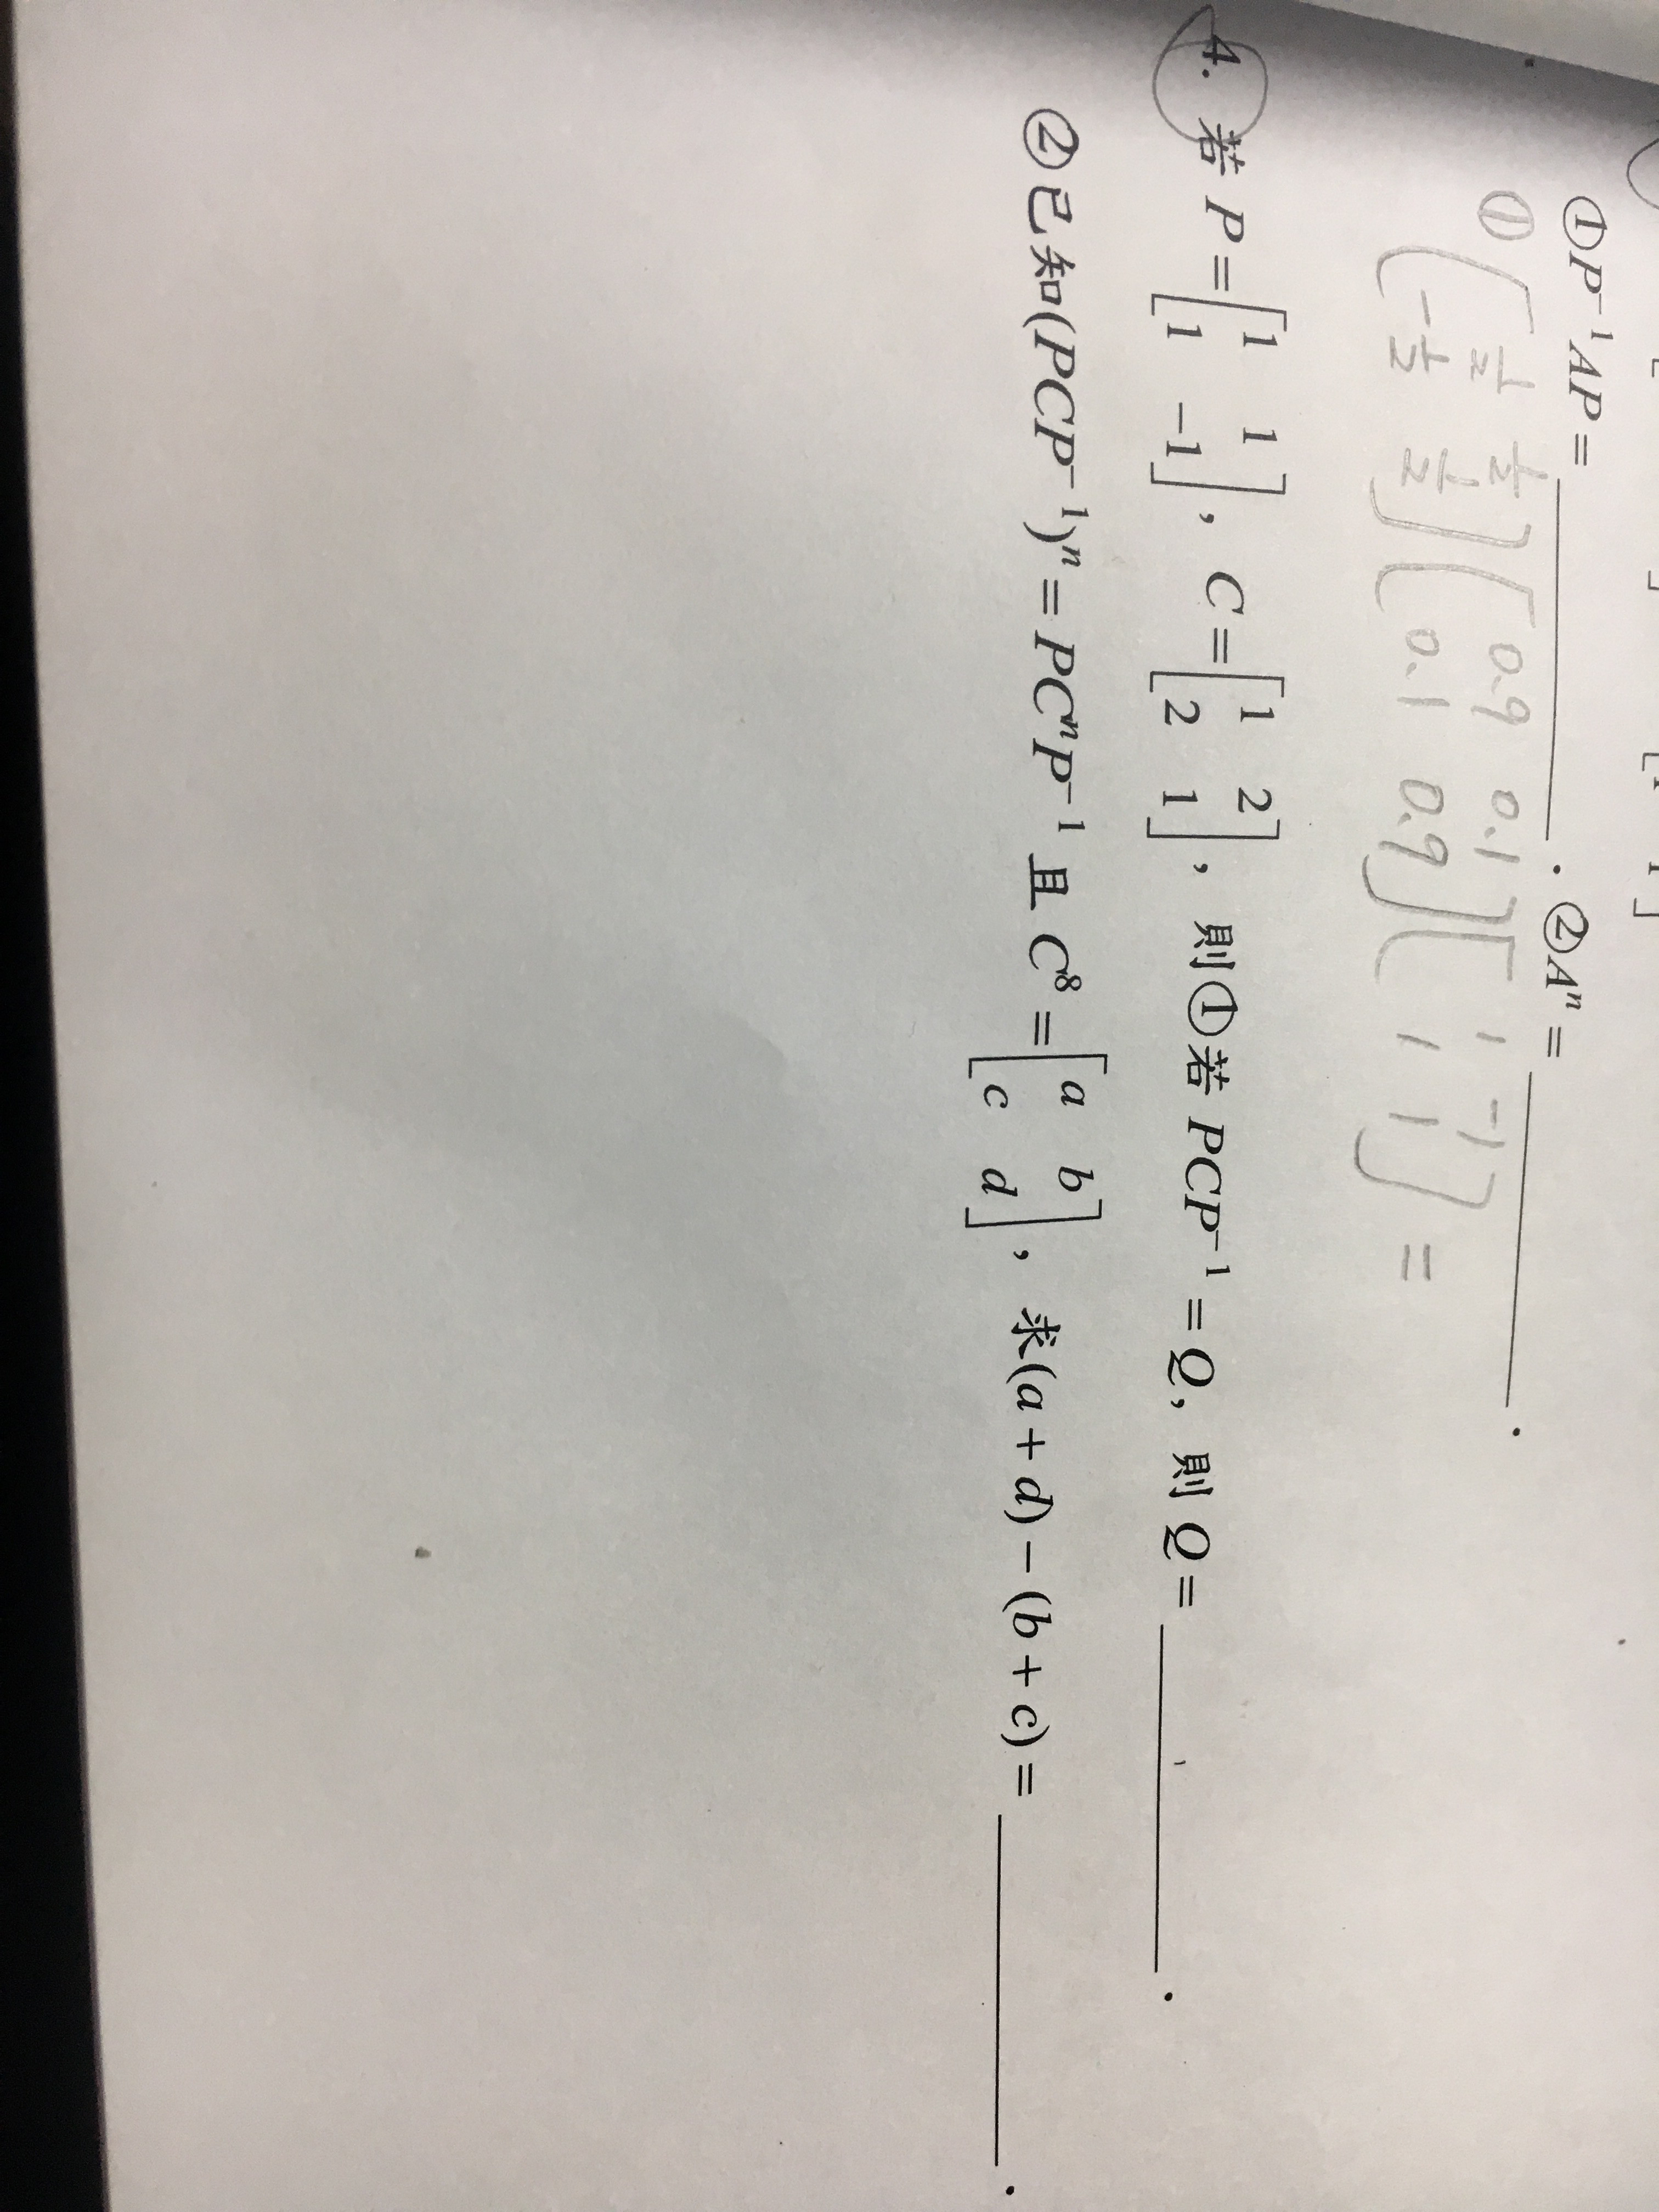 ①P⁻¹AP = ________. ②Aⁿ = ________.
① [1/2 1/2; -1/2 1/2] [0.9 0.1; 0.1 0.9] [1 -1; 1 1] =
4. 若 P = [1 1; 1 -1], C = [1 2; 2 1], 則①若 PCP⁻¹ = Q, 則 Q = ________.
②已知(PCP⁻¹)ⁿ = PCⁿP⁻¹ 且 C⁸ = [a b; c d], 求(a + d) − (b + c) = ________.